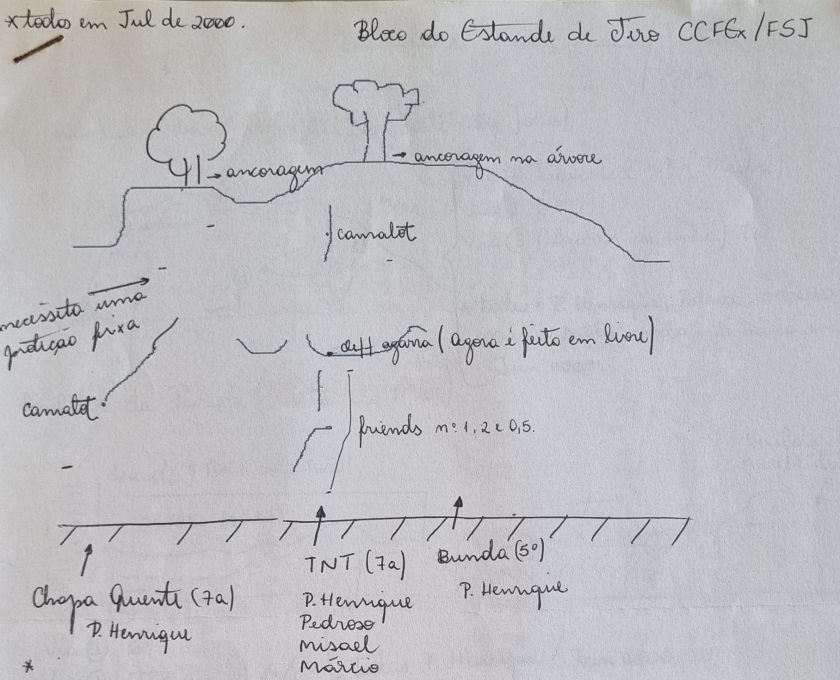 *todos em Jul de 2000.
Bloco do Estande de Tiro CCFEx/FSJ
→ ancoragem
→ ancoragem na árvore
camalot
necessita uma
proteção fixa
(agora é feito em livre)
camalot
friends nº 1, 2 e 0,5.
Chapa Quente (7a)
P. Henrique
TNT (7a)
P. Henrique
Pedroso
Misael
Márcio
Bunda (5º)
P. Henrique
*